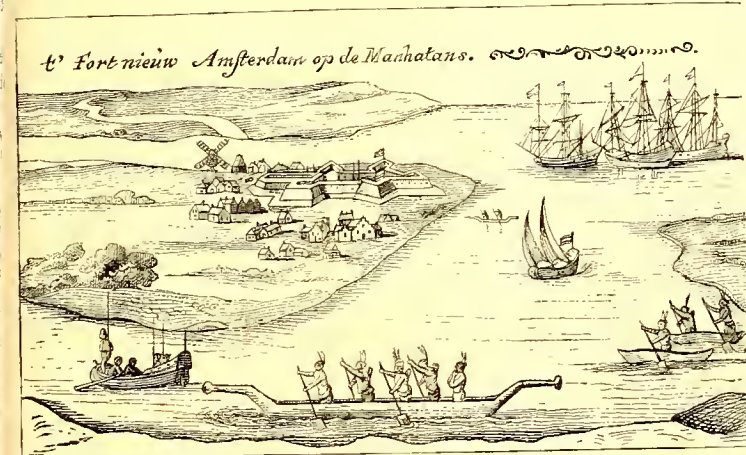 t' Fort nieüw Amſterdam op de Manhatans.